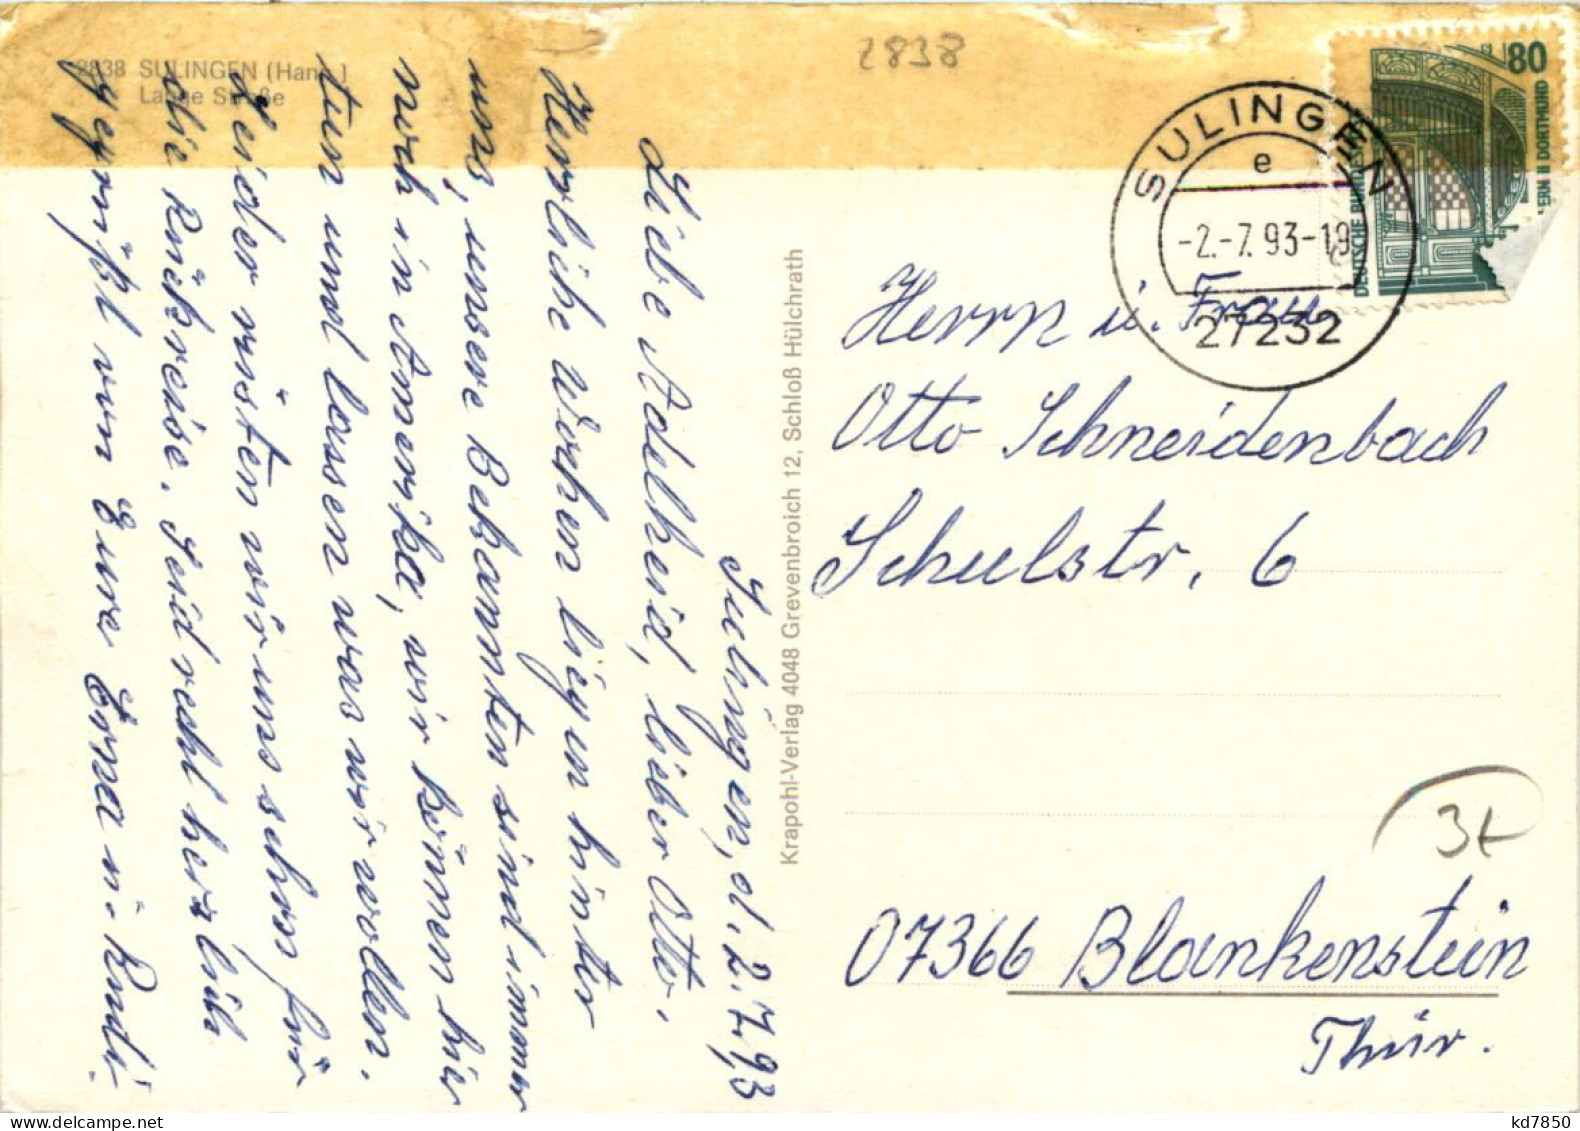 2838 SULINGEN (Hann.)
Lange Straße
2838
Sulingen, d. 2.7.93
Liebe Adelheid, lieber Otto.
Herrliche Wochen liegen hinter
uns, unsere Bekannten sind immer
noch in Amerika, wir können hier
tun und lassen was wir wollen.
Leider rüsten wir uns schon für
die Rückreise. Seid recht herzlich
gegrüßt von Eure Erna u. Rudi.
Krapohl-Verlag 4048 Grevenbroich 12, Schloß Hülchrath
SULINGEN
e
-2.-7.93-19
27232
80
DEUTSCHE BU
ERN II DORTMUND
Herrn u. Frau
Otto Schneidenbach
Schulstr. 6
3t
07366 Blankenstein
Thür.
kd7850